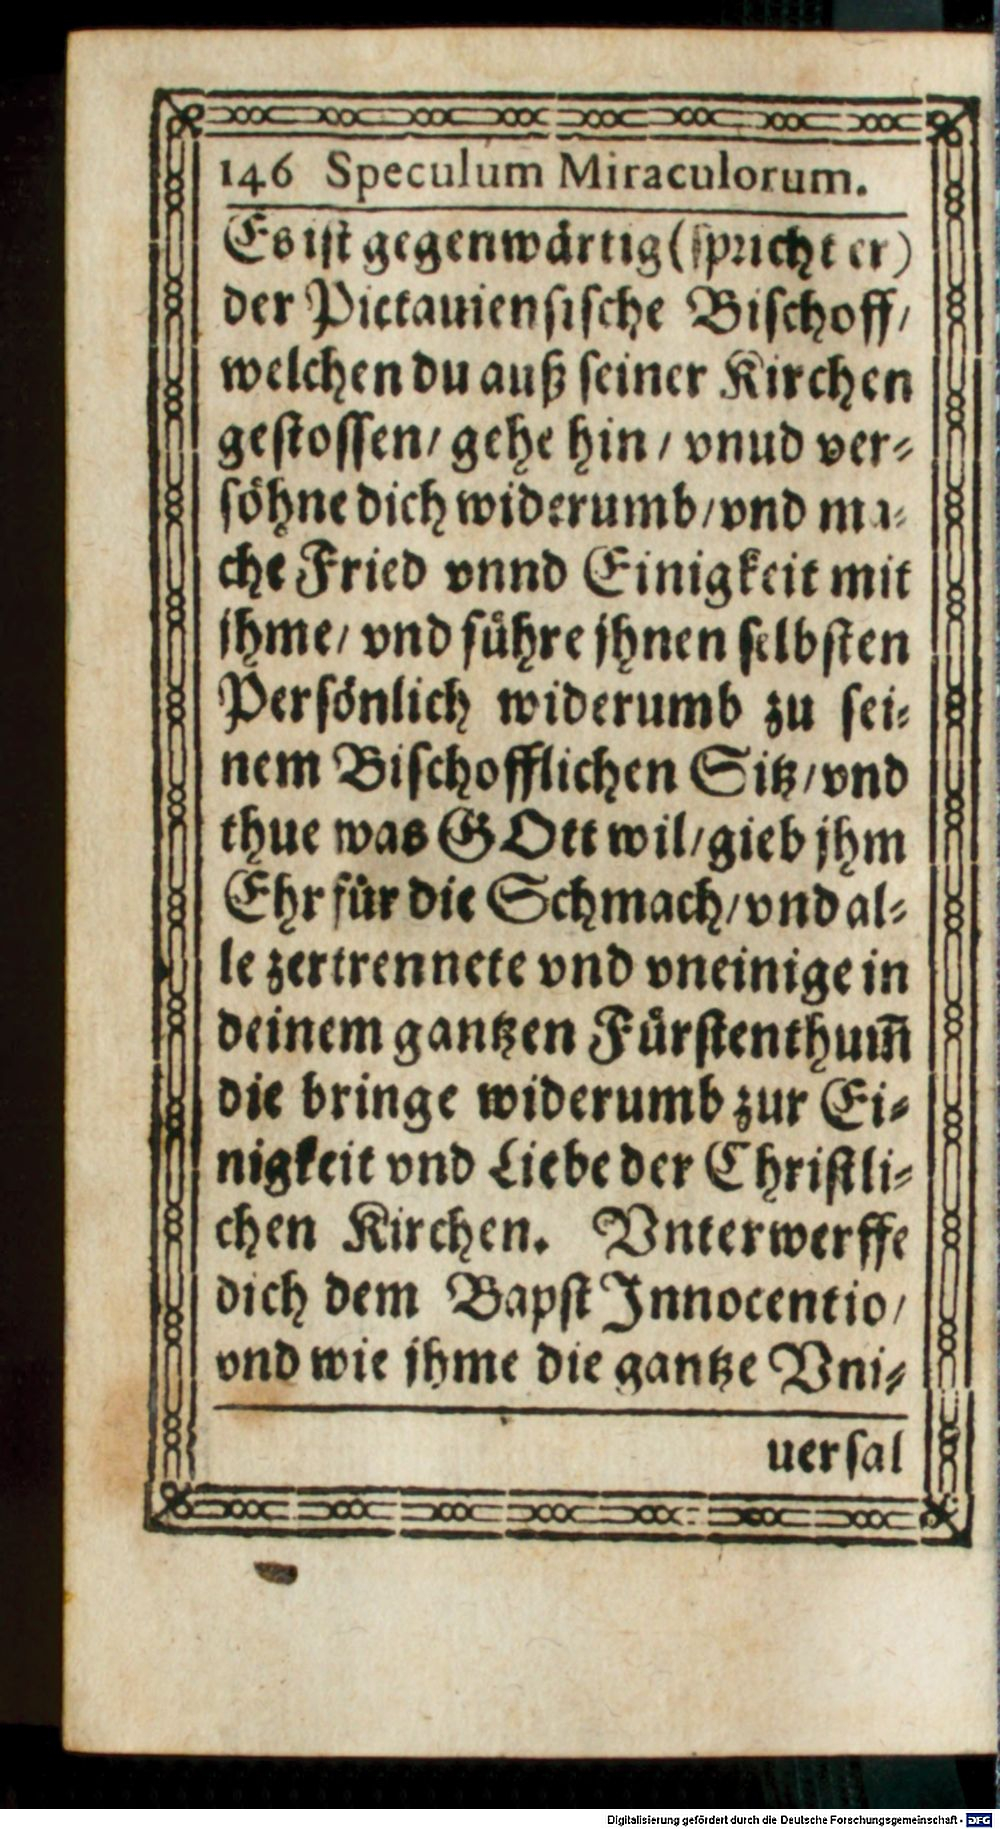 146 Speculum Miraculorum.
Es ist gegenwärtig (spricht er)
der Pictauiensische Bischoff/
welchen du auß seiner Kirchen
gestossen/ gehe hin / vnud ver-
söhne dich widerumb/vnd ma-
che Fried vnnd Einigkeit mit
jhme/ vnd führe jhnen selbsten
Persönlich widerumb zu sei-
nem Bischofflichen Sitz/vnd
thue was GOtt wil/gieb jhm
Ehr für die Schmach/vnd al-
le zertrennete vnd vneinige in
deinem gantzen Fürstenthum̄
die bringe widerumb zur Ei-
nigkeit vnd Liebe der Christli-
chen Kirchen. Vnterwerffe
dich dem Bapst Innocentio/
vnd wie jhme die gantze Vni-
uersal
Digitalisierung gefördert durch die Deutsche Forschungsgemeinschaft - DFG